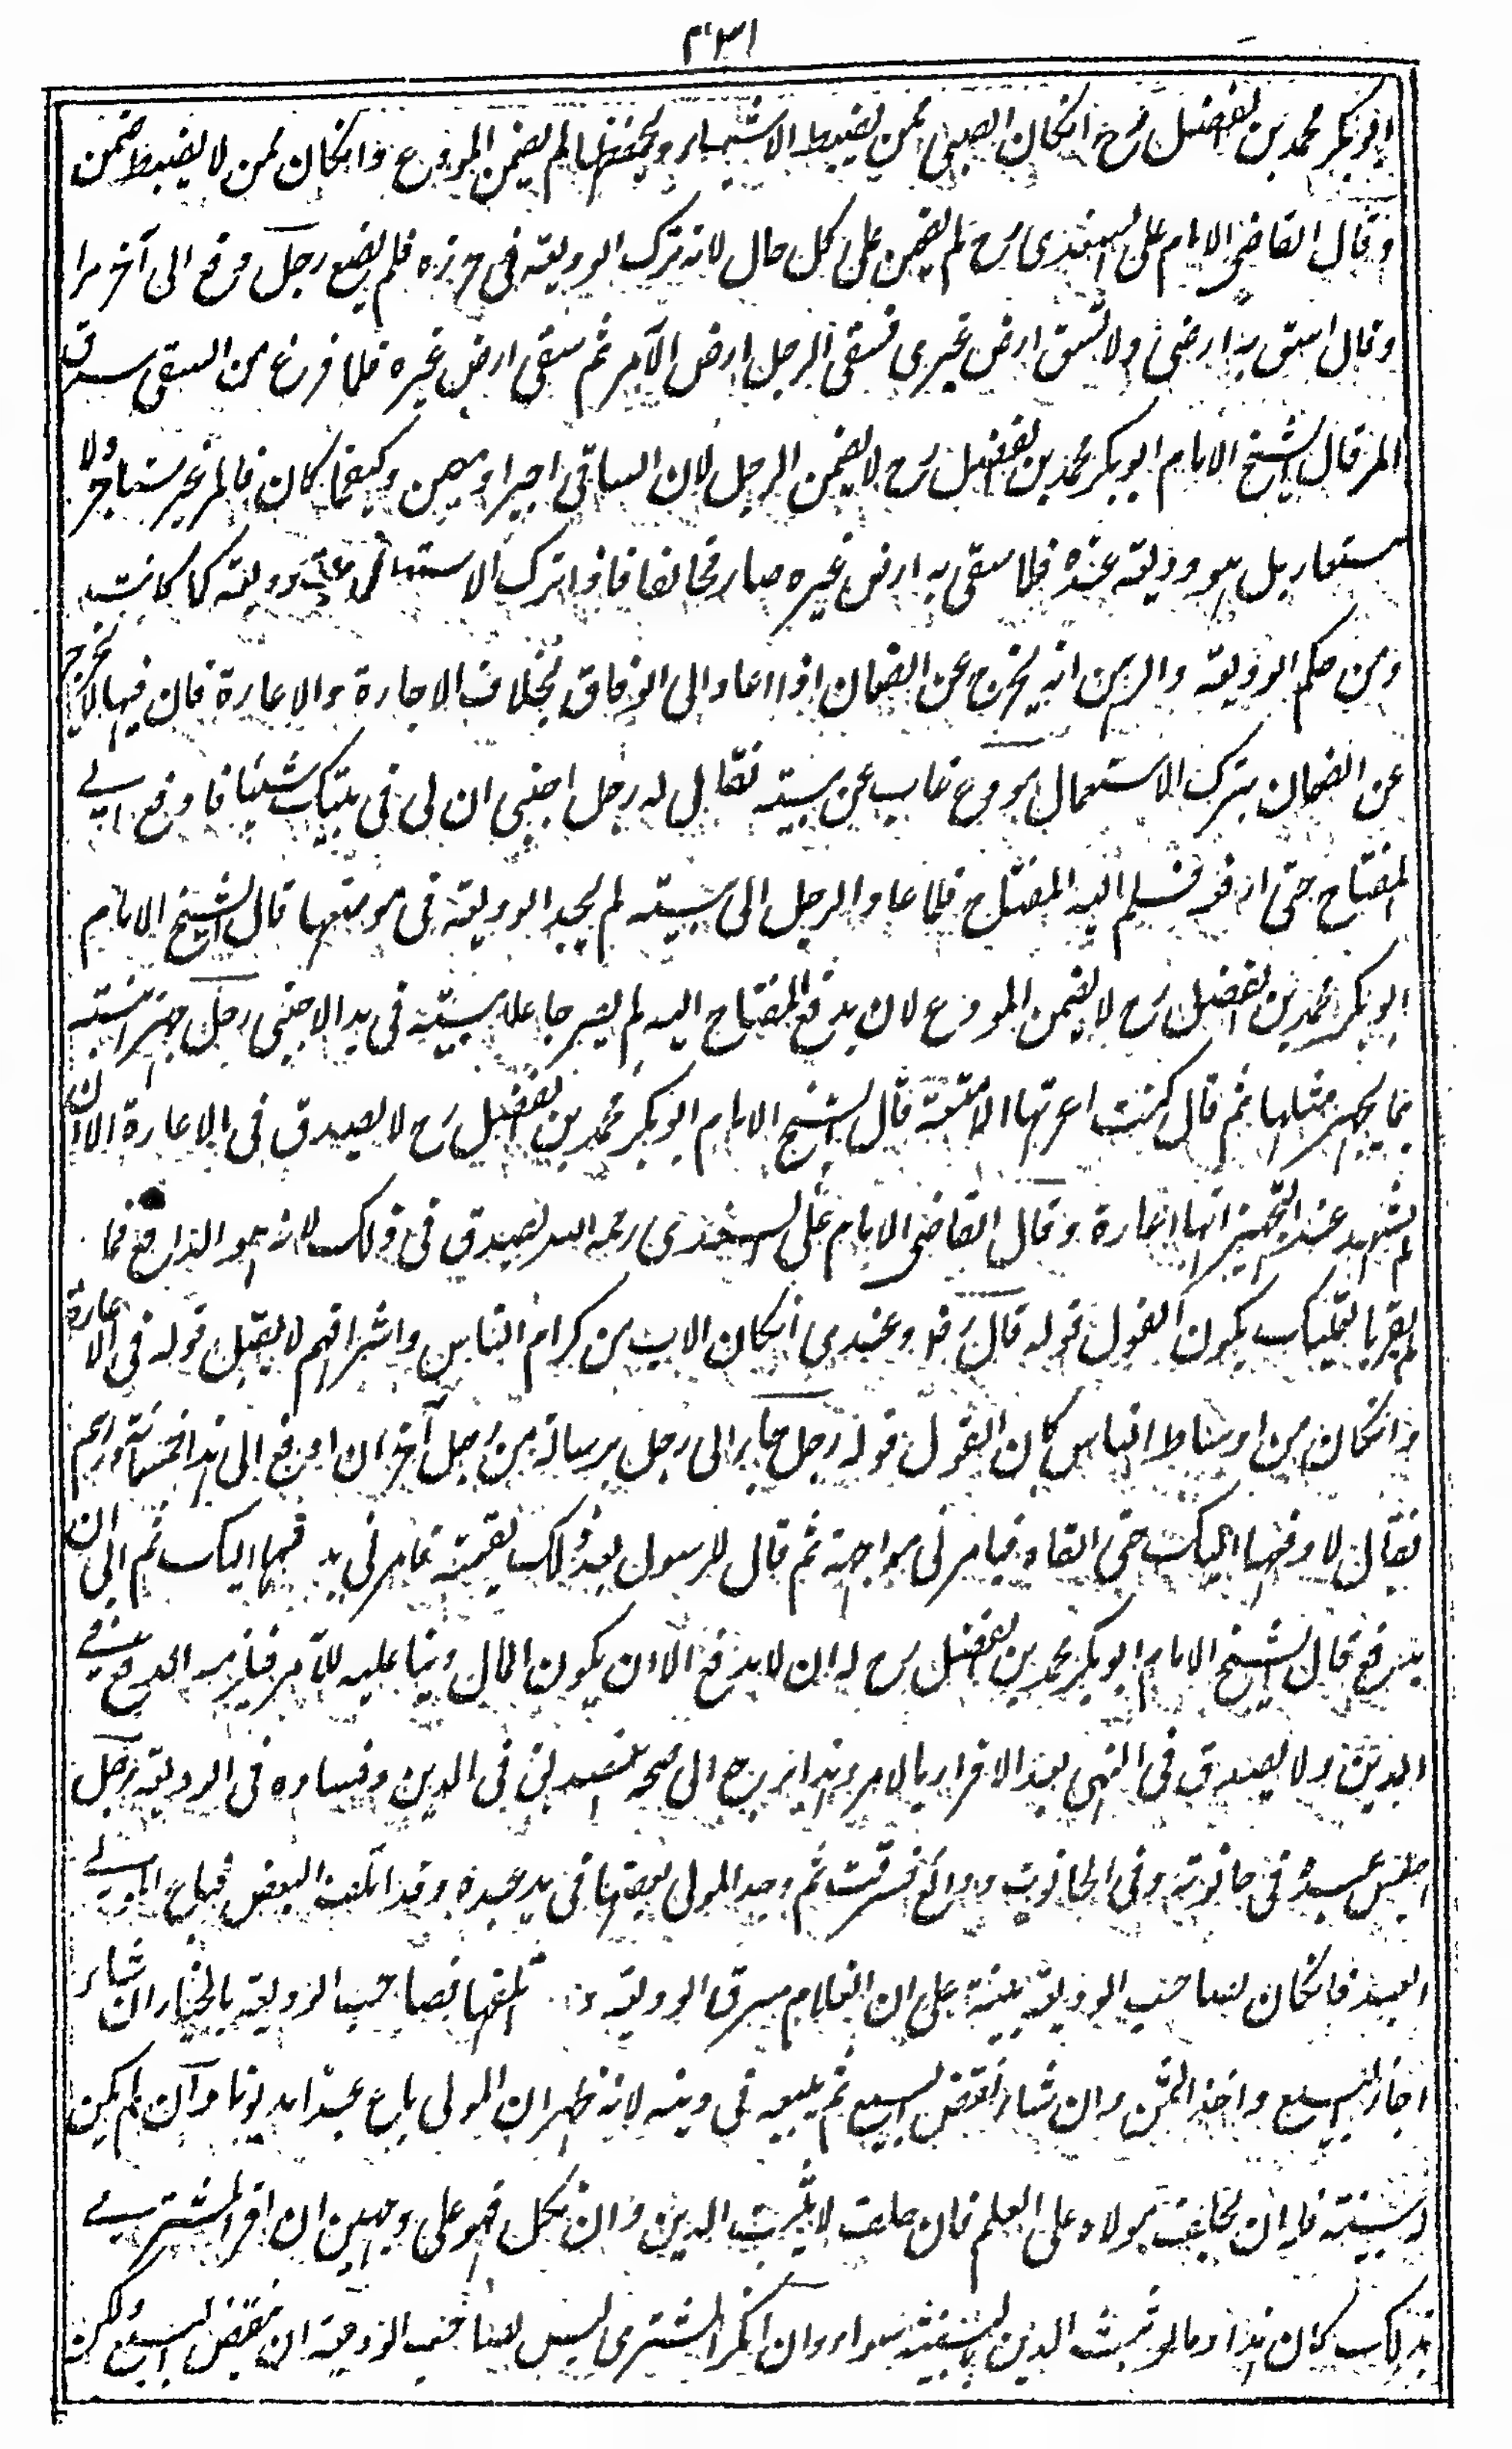 ابو بكر محمد بن الفضل رح انكان الصبى ممن يضبط الاشياء ويحفظها لم يضمن المودع وانكان ممن لا يضبط ضمن
وقال القاضى الامام على السغدى رح لم يضمن على كل حال لانه ترك الوديعة فى حرزه فلم يضع رجل دفع الى آخر مرا
وقال اسق به ارضى ولا تسق ارض غيرى فسقى الرجل ارض الآمر ثم سقى ارض غيره فلما فرغ من السقى سرق
المر قال الشيخ الامام ابو بكر محمد بن الفضل رح لا يضمن الرجل لان الساقى اجير او معين وكيفما كان فالمر غير مستاجر ولا
مستعار بل هو وديعة عنده فلما سقى به ارض غيره صار مخالفا فاذا ترك الاستعمال عاد وديعة كما كانت
ومن حكم الوديعة والرهن انه يخرج عن الضمان اذا عاد الى الوفاق بخلاف الاجارة والاعارة فان فيهما لا يخرج
عن الضمان بترك الاستعمال مودع غاب عن بيته فقال له رجل اجنبى ان لى فى بيتك شيئا فادفع الى
المفتاح حتى ارفعه فسلم اليه المفتاح فلما عاد الرجل الى بيته لم يجد الوديعة فى موضعها قال الشيخ الامام
ابو بكر محمد بن الفضل رح لا يضمن المودع لان بدفع المفتاح اليه لم يصر جاعلا بيته فى يد الاجنبى رجل جهز ابنته
بما يجهز مثلها ثم قال كنت اعرتها الامتعة قال الشيخ الامام ابو بكر محمد بن الفضل رح لا يصدق فى الاعارة الا ان
يشهد عند التجهيز انها اعارة وقال القاضى الامام على السغدى رحمه الله يصدق فى ذلك لانه هو الدافع فما
لم يقر بالتمليك يكون القول قوله قال رض وعندى انكان الاب من كرام الناس واشرافهم لا يقبل قوله فى الاعارة
وانكان من اوساط الناس كان القول قوله رجل جاء الى رجل برسالة من رجل آخر ان ادفع الى هذا خمسمائة درهم
فقال لا ادفعها اليك حتى القاه فيامرنى مواجهة ثم قال للرسول بعد ذلك لقيته فامرنى بدفعها اليك ثم ابى ان
يدفع قال الشيخ الامام ابو بكر محمد بن الفضل رح له ان لا يدفع الا ان يكون المال دينا عليه للآمر فيلزمه الدفع فى
الدين ولا يصدق فى النهى بعد الاقرار بالامر وهذا يرجع الى صحة تصديق فى الدين وفساده فى الوديعة رجل
اجلس عبده فى حانوته وفى الحانوت ودائع فسرقت ثم وجد المولى بعضها فى يد عبده وقد اتلف البعض فباع المولى
العبد فانكان لصاحب الوديعة بينة على ان الغلام سرق الوديعة واتلفها فصاحب الوديعة بالخيار ان شاء
اجاز البيع واخذ الثمن وان شاء نقض البيع ثم يبيعه فى دينه لانه ظهر ان المولى باع عبدا مديونا وان لم يكن
له بينة فله ان يحلف مولاه على العلم فان حلف لا يثبت الدين وان نكل فهو على وجهين ان اقر المشترى
بذلك كان هذا وما لو ثبت الدين بالبينة سواء وان انكر المشترى ليس لصاحب الوديعة ان ينقض البيع ولكن